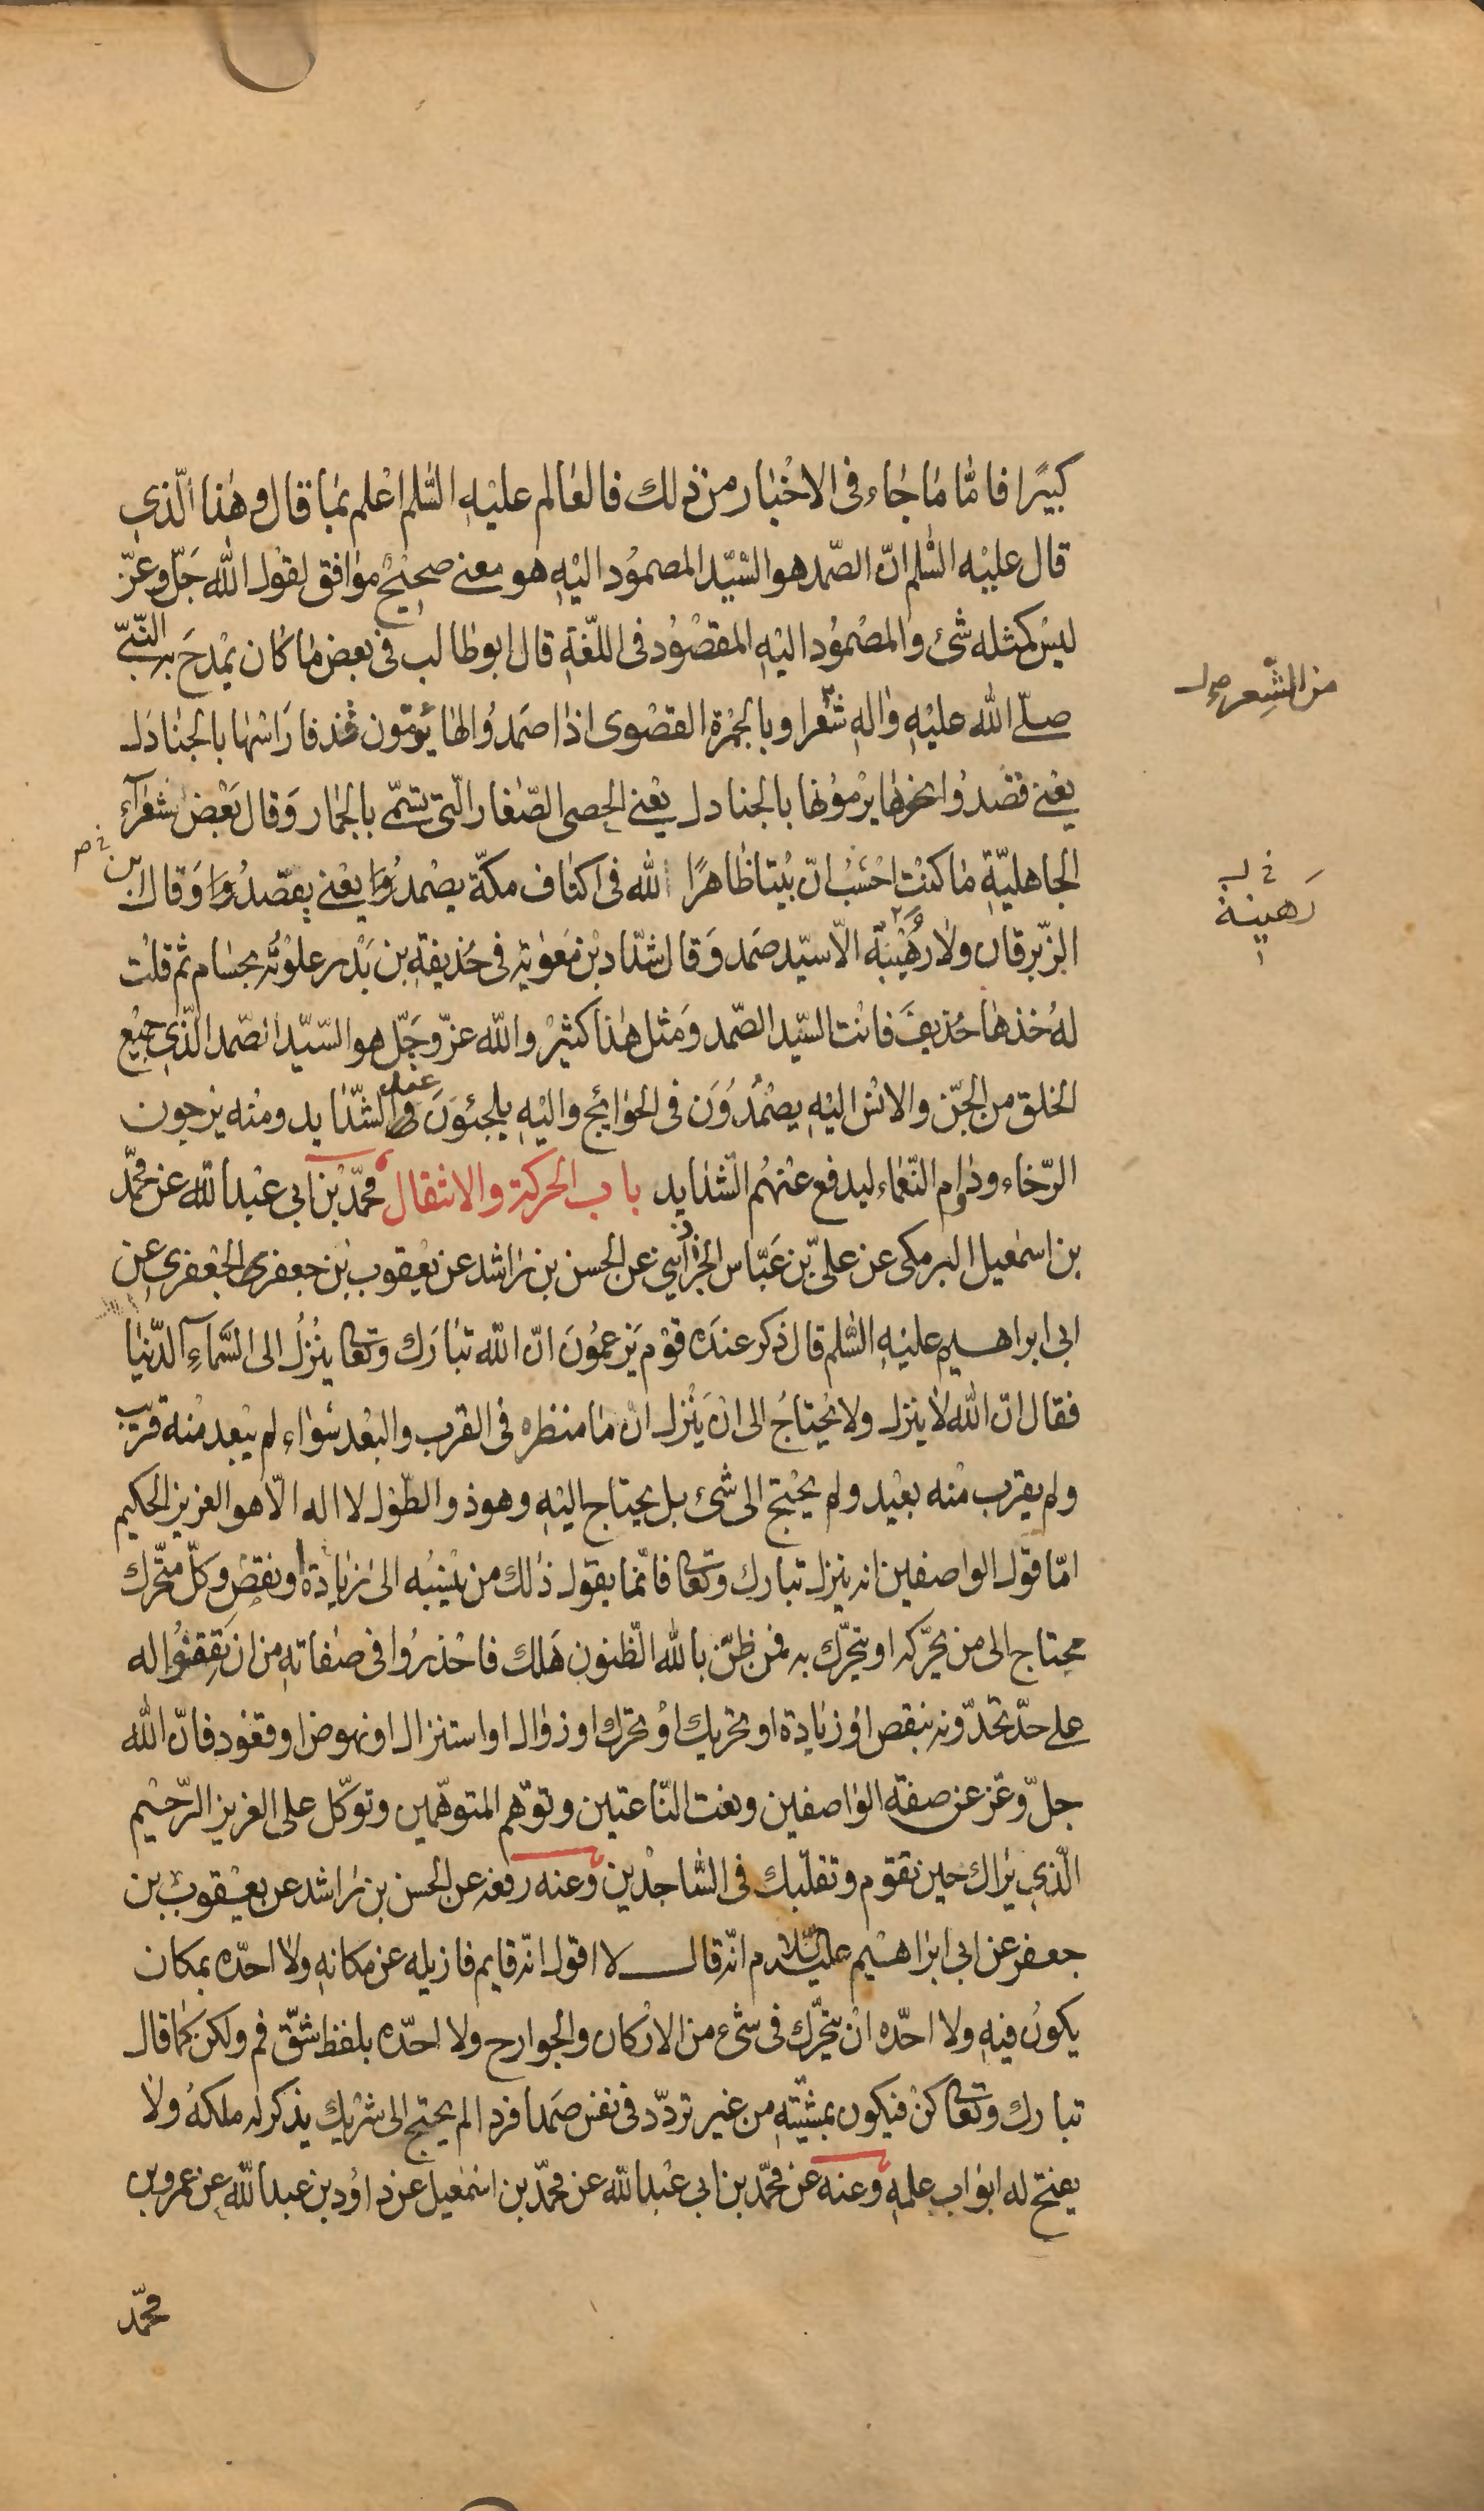 كبيرًا فامّا ما جاء فى الاخبار من ذلك فالعالم عليه السّلم اعلم بما قال وهذا الّذى
قال عليه السّلم انّ الصّمد هو السّيّد المصمود اليه هو معنى صحيح موافق لقول الله جلّ وعزّ
ليس كمثله شئ والمصمود اليه المقصود فى اللّغة قال ابو طالب فى بعض ما كان يمدح به النّبىّ
صلّى الله عليه واله شعرا وبالجمرة القصوى اذا صمدوا لها يؤمّون قذفا راسها بالجنادل
يعنى قصدوا نحوها يرمونها بالجنادل يعنى الحصى الصّغار الّتى تسمّى بالجمار وقال بعض شعرآء
الجاهليّة ما كنت احسب انّ بيتا ظاهرًا لله فى اكناف مكّة يصمد وا يعنى يقصد وا وقال ابن
الزّبرقان ولا رهيبة الّا سيّد صمد وقال شدّاد بن معوية فى حذيفة بن بدر علوته بحسام ثم قلت
له خذها حذيف فانت السّيّد الصّمد ومثل هذا كثير والله عزّ وجلّ هو السّيّد الصّمد الّذى جميع
الخلق من الجنّ والانس اليه يصمدون فى الحوائج واليه يلجئون عند الشّدايد ومنه يرجون
الرّخاء ودوام النّعماء ليدفع عنهم الشّدايد باب الحركة والانتقال محمّد بن ابى عبد الله عن محمّد
بن اسمعيل البرمكى عن علىّ بن عبّاس الخراذينى عن الحسن بن راشد عن يعقوب بن جعفر الجعفرى عن
ابى ابراهيم عليه السّلم قال ذكر عنده قوم يزعمون انّ الله تبارك وتعا ينزل الى السّمآء الدّنيا
فقال انّ الله لا ينزل ولا يحتاج الى ان ينزل انّ ما منظره فى القرب والبعد سواء لم يبعد منه قريب
ولم يقرب منه بعيد ولم يحتج الى شئ بل يحتاج اليه وهو ذو الطّول لا اله الّا هو العزيز الحكيم
امّا قول الواصفين انه ينزل تبارك وتعا فانّما يقول ذلك من ينسبه الى زيادة او نقص وكلّ متحرّك
محتاج الى من يحرّكه او يتحرّك به فمن ظنّ بالله الظّنون هلك فاحذروا فى صفاته من ان تقفوا له
على حدّ تحدّونه بنقص او زيادة او تحريك او تحرّك او زوال او استنزال او نهوض او قعود فانّ الله
جلّ وعّز عن صفة الواصفين ونعت النّاعتين وتوهّم المتوهّمين وتوكّل على العزيز الرّحيم
الّذى يراك حين تقوم وتقلّبك فى السّاجدين وعنه رفعه عن الحسن بن راشد عن يعقوب بن
جعفر عن ابى ابراهيم عليه السّلام انّه قال لا اقول انّه قايم فازيله عن مكانه ولا احدّه بمكان
يكون فيه ولا احدّه ان يتحرّك فى شئ من الاركان والجوارح ولا احدّه بلفظ شقّ فم ولكن كما قال
تبارك وتعا كن فيكون بمشيّته من غير تردّد فى نفس صمدا فردا لم يحتج الى شريك يذكر له ملكه ولا
يفتح له ابواب علمه وعنه عن محمّد بن ابى عبد الله عن محمّد بن اسمعيل عن داود بن عبد الله عن عمرو بن
محمّد
من الشّعر
رهينة